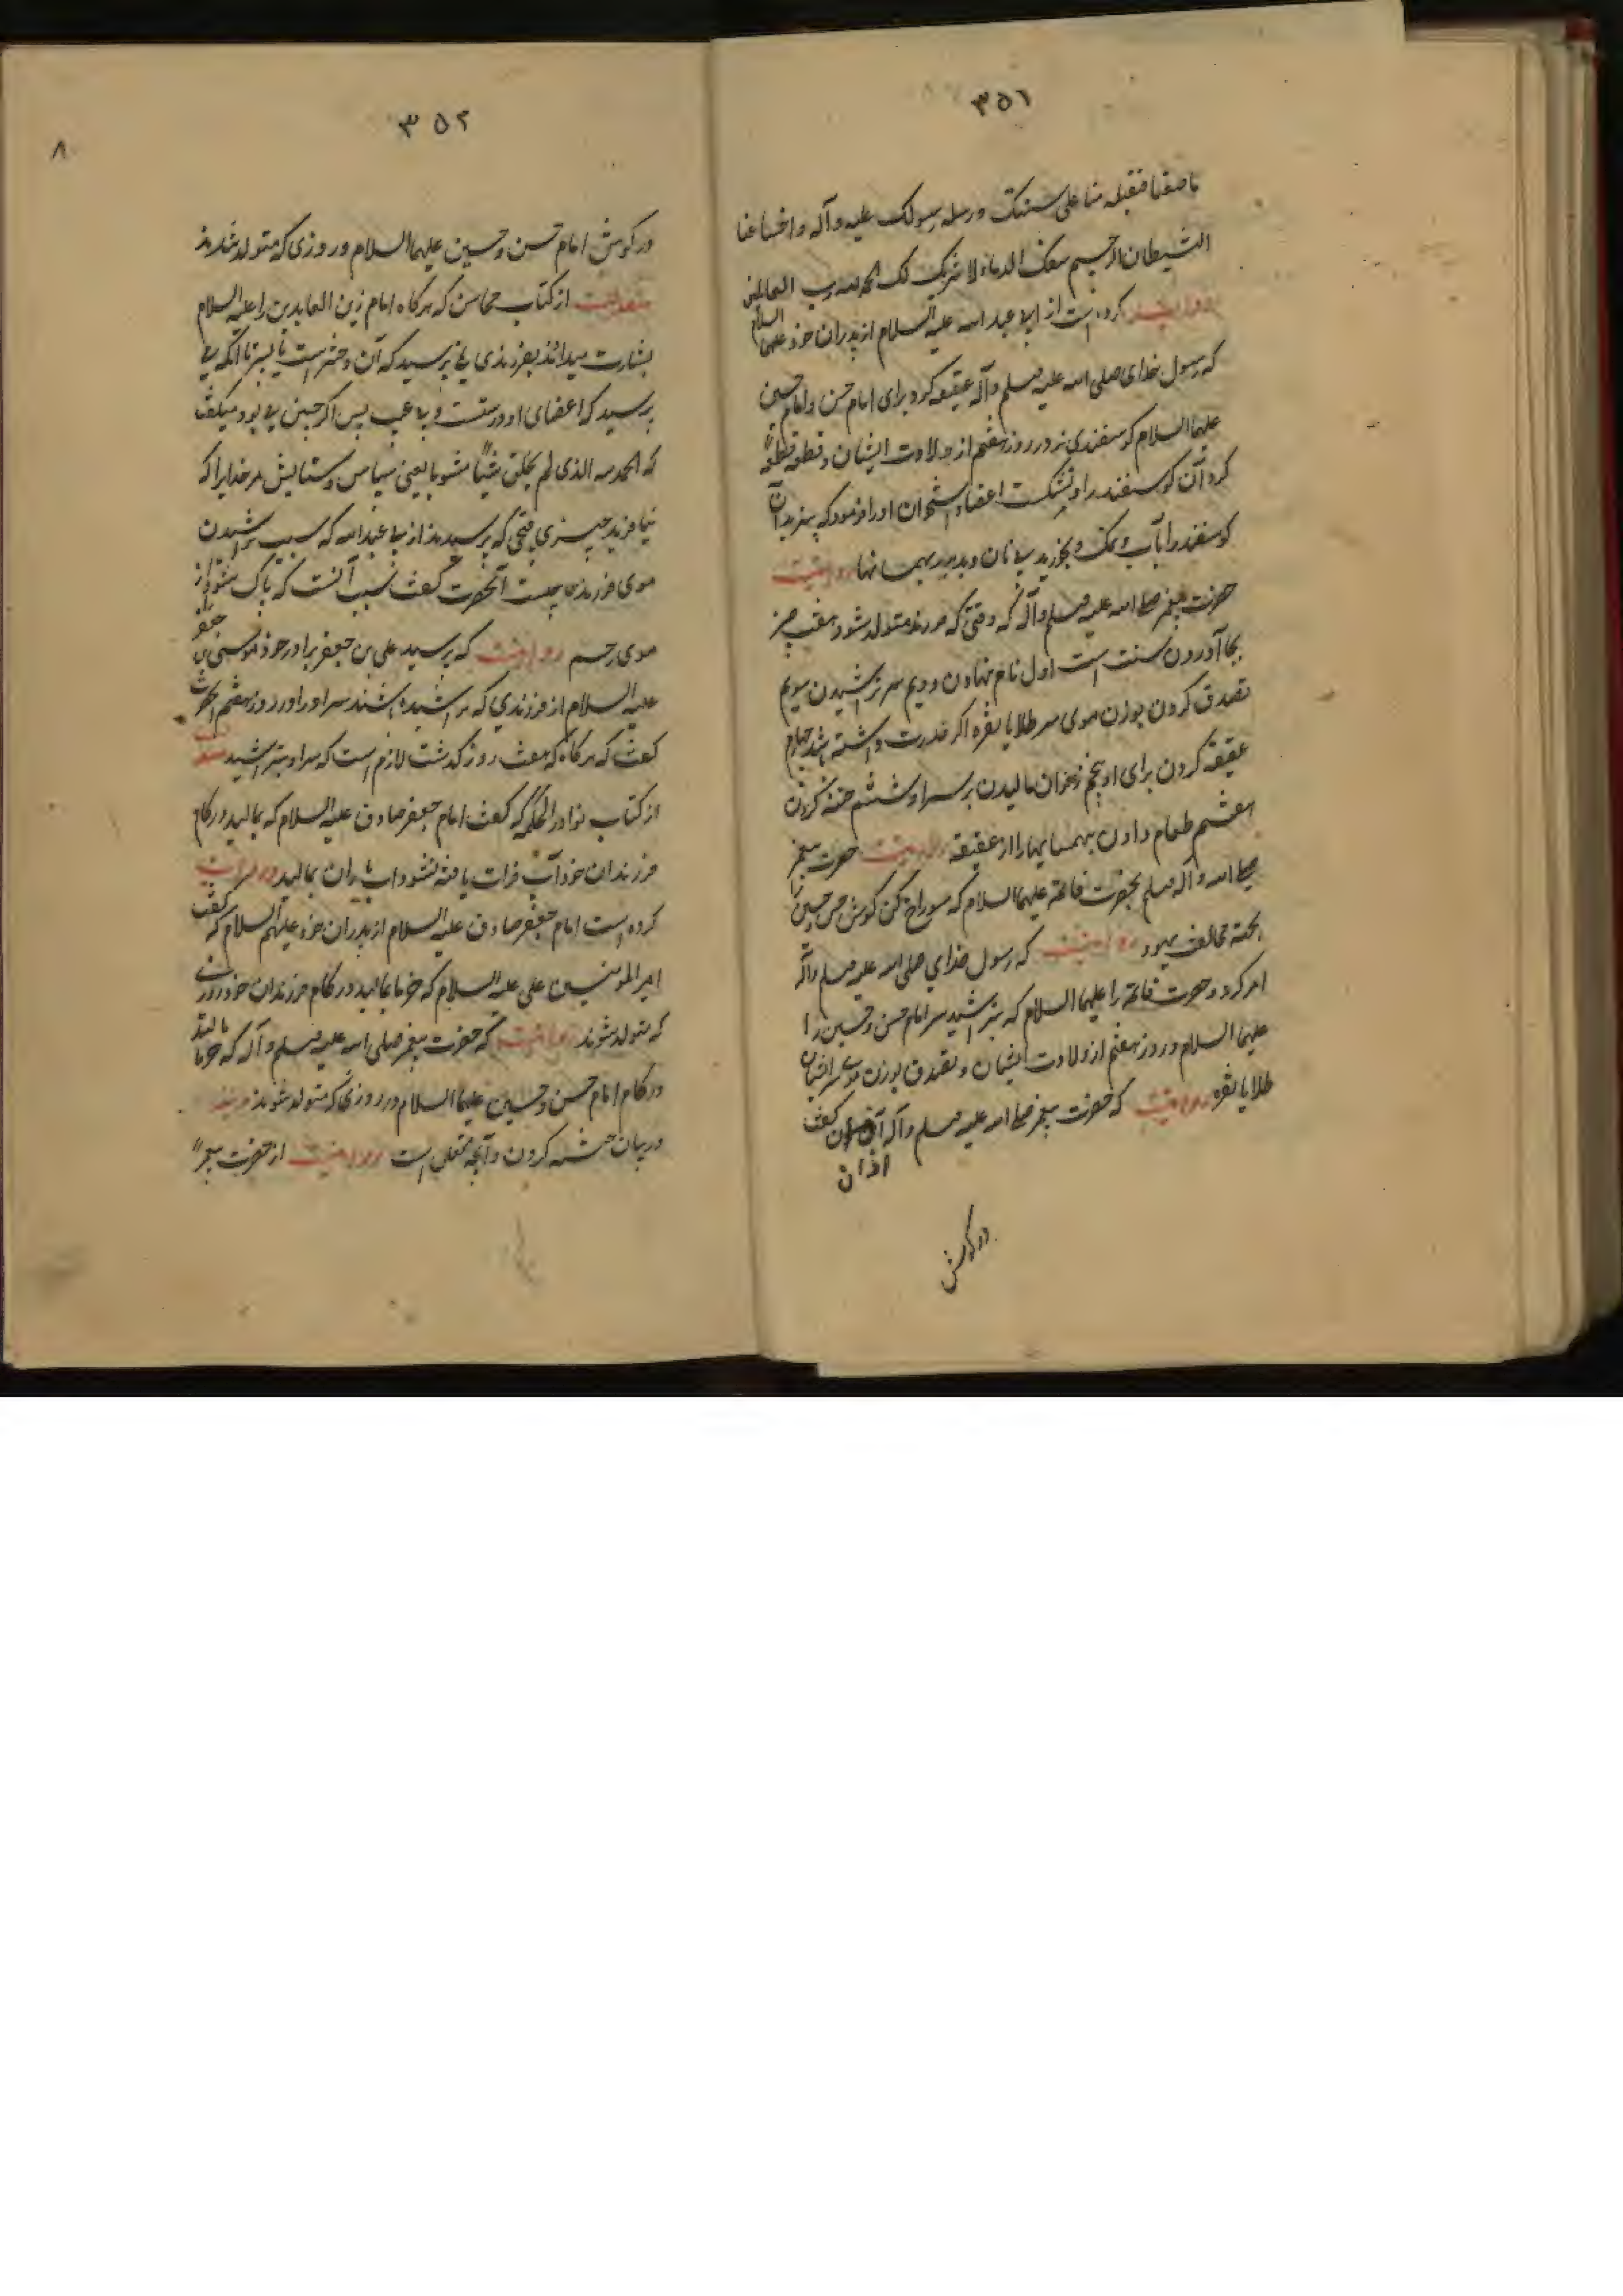 ٣٥١
ما صنعنا فتقبله منا علی سنتک و رسله رسولک علیه و آله و اخسأ عنا
الشیطان الرجیم سفکت الدماء لا شریک لک الحمد لله رب العالمین
کرده است از ابی عبد الله علیه السلام از پدران خود علیهما السلام
که رسول خدای صلی الله علیه و سلم و آله عقیقه کرد برای امام حسن و امام حسین
علیهما السلام گوسفندی نر در روز هفتم از ولادت ایشان و قطعه قطعه
کرد آن گوسفند را و نشکست اعضاء استخوان او را فرمود که بپزید آن
گوسفند را بآب و نمک و بخورید بی نان و بدهید بهمسایها روایتست
حضرت پیغمبر صلی الله علیه و سلم و آله که وقتی که فرزند متولد شود هفت چیز
بجا آوردن سنت است اول نام نهادن دویم سر تراشیدن سویم
تصدق کردن بوزن موی سر طلا یا نقره اگر قدرت داشته باشد چهارم
عقیقه کردن برای او پنجم زعفران مالیدن بر سر او ششم ختنه کردن
هفتم طعام دادن بهمسایها را از عقیقه روایتست حضرت پیغمبر
صلی الله و آله و سلم بحضرت فاطمه علیهما السلام که سوراخ کن گوش حسن و حسین را
بجهته مخالفت یهود روایتست که رسول خدای صلی الله علیه و سلم و آله
امر کرد حضرت فاطمه را علیهما السلام که بتراشید سر امام حسن و حسین را
علیهما السلام در روز هفتم از ولادت ایشان و تصدق بوزن موی سر ایشان
طلا یا نقره روایتست که حضرت پیغمبر صلی الله علیه و سلم و آله گفت
اذان
در گوش
٣٥٢
٨
در گوش امام حسن و حسین علیهما السلام در روزی که متولد شدند
منقولست از کتاب محاسن که هرگاه امام زین العابدین را علیه السلام
بشارت میدادند بفرزندی نمی پرسید که آن دختر است یا پسر تا آنکه می
پرسید که اعضای او درستست و بی عیب پس اگر چنین می بود میگفت
که الحمد لله الذی لم یخلق شیئا مشوها یعنی سپاس و ستایش مر خدایرا که
نیافرید چیزی قبیح که پرسیدند از ابی عبد الله که سبب تراشیدن
موی فرزند چیست آنحضرت گفت سبب آنست که پاک شود از
موی رحم روایتست که پرسید علی بن جعفر برادر خود موسی بن جعفر را
علیه السلام از فرزندی که تراشیده باشند سر او را در روز هفتم آنحضرت
گفت که هرگاه که هفت روز گذشت لازم است که سر او بتراشید
از کتاب نوادر الحکمه که گفت امام جعفر صادق علیه السلام که بمالید در کام
فرزندان خود آب فرات یافته نشود آب باران بمالید روایت
کرده است امام جعفر صادق علیه السلام از پدران خود علیهم السلام که گفت
امیر المومنین علی علیه السلام که خرما بمالید در کام فرزندان خود روزی
که متولد شوند روایتست که حضرت پیغمبر صلی الله علیه و سلم و آله که خرما مالید
در کام امام حسن و حسین علیهما السلام در روزی که متولد شدند
در بیان ختنه کردن و آنچه متعلق است روایتست از حضرت پیغمبر